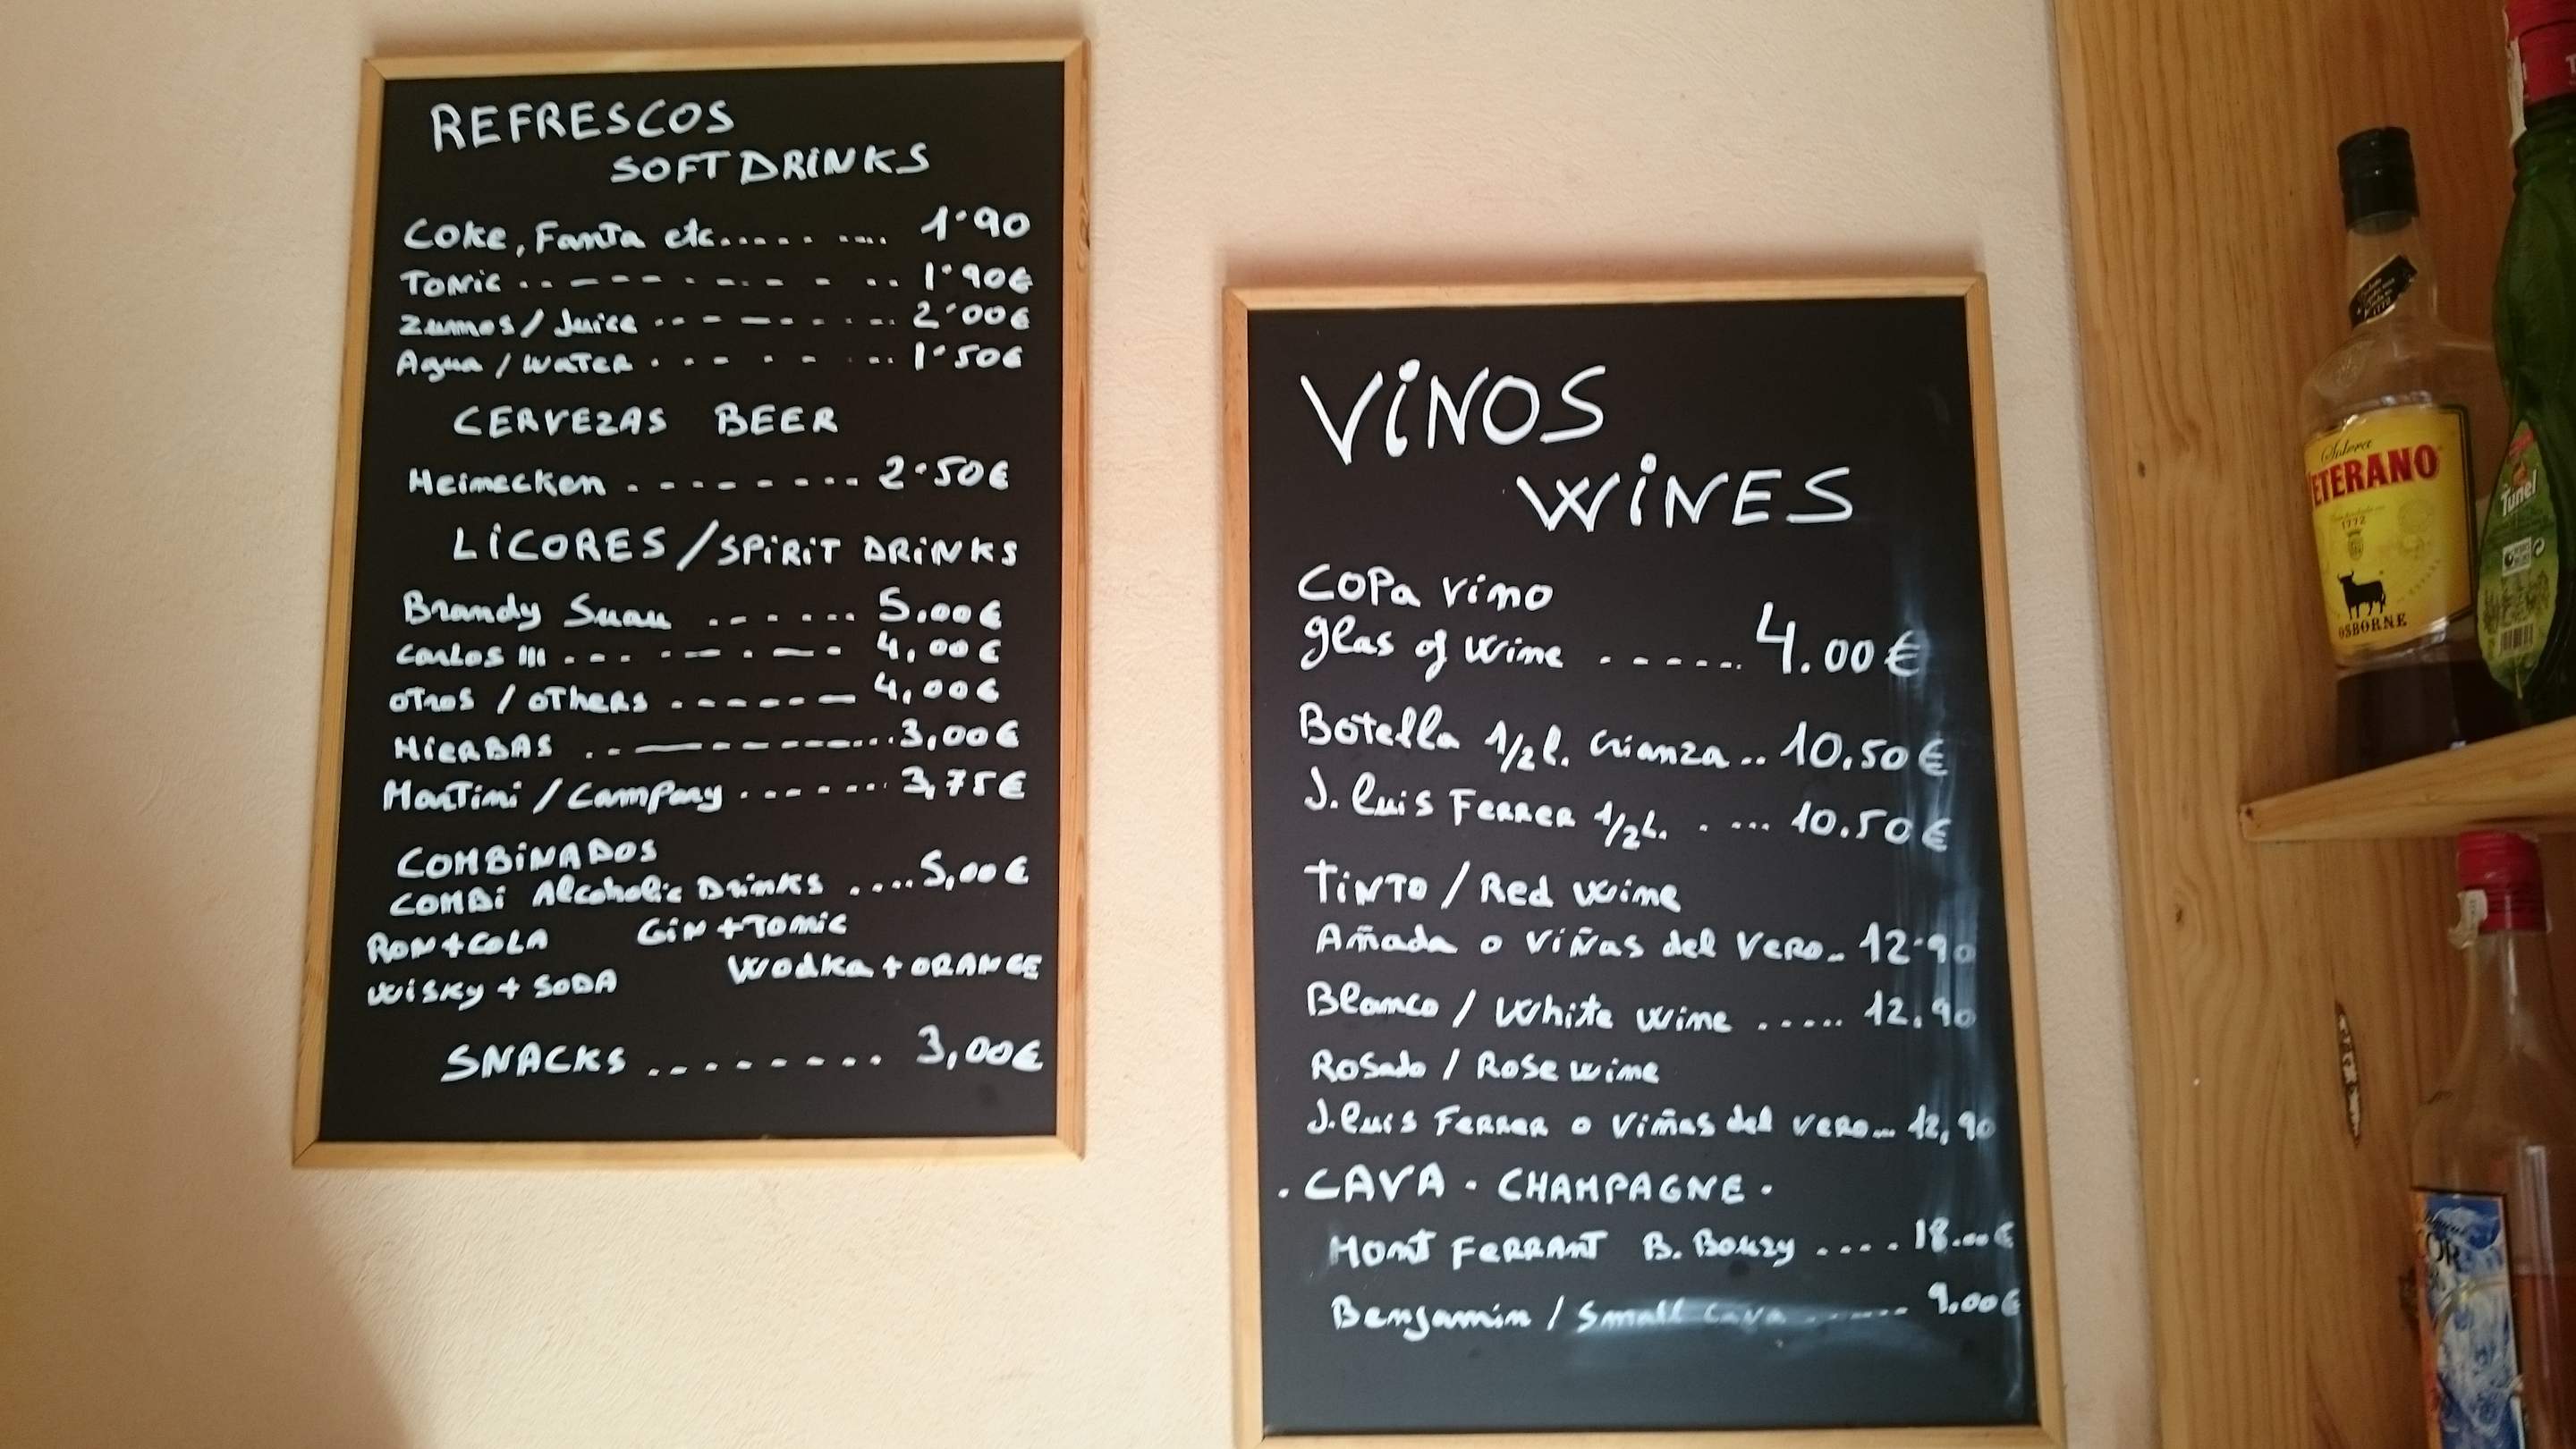 REFRESCOS
SOFT DRiNKS
Coke, Fanta etc......... 1'90
Tonic .. - - - - - - - - .. 1'90€
Zumos / Juice .. - - - - - .. 2'00€
Agua / Water . - - - - - .. 1'50€
CERVEZAS BEER
Heinecken . - - - - - - - .. 2'50€
LiCORES / SPiRiT DRiNKS
Brandy Suau . - - . . . 5,00€
Carlos III . - - . - — - . — - 4,00€
otros / others . - - - - — 4,00€
HierBAS . . - — — - - - - ... 3,00€
Martini / Campary . - - - - .. 3,75€
COMBiNADOS
COMBi Alcoholic Drinks .... 5,00€
RON + COLA Gin + Tonic
Wisky + SODA Wodka + ORANGE
SNACKS . . - - - - - . 3,00€
ViNOS
WiNES
Copa vino
glas of wine . - - - - .. 4.00€
Botella 1/2 l. crianza .. 10.50€
J. Luis Ferrer 1/2 L. . ... 10.50€
TiNTO / Red wine
Añada o Viñas del Vero .. 12'90
Blanco / White wine ..... 12,90
Rosado / Rose wine
J. Luis Ferrer o Viñas del vero ... 12,90
. CAVA . CHAMPAGNE .
Mont FERRANT B. Bouzy .... 18.00€
Benjamin / Small cava ...... 9.00€
Solera
VETERANO
1772
OSBORNE
Tunel